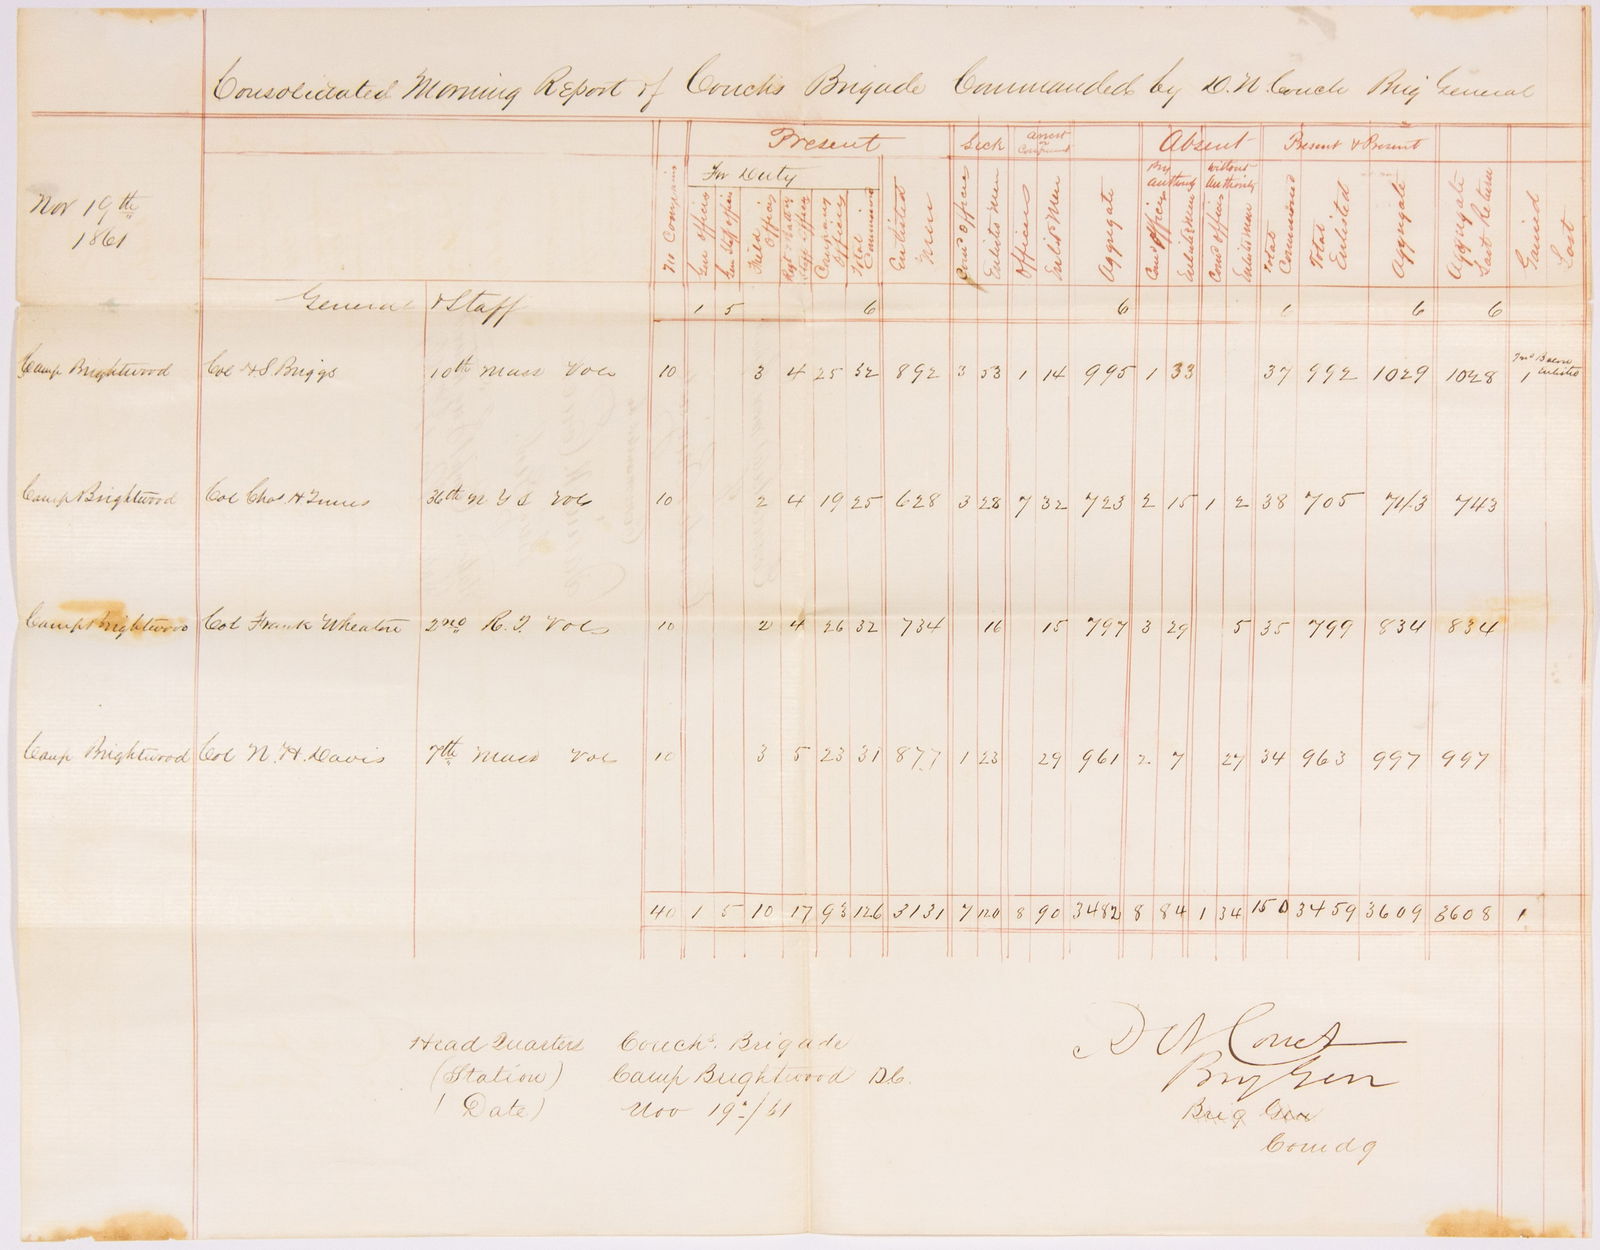 Consolidated Morning Report of Couch's Brigade Commanded by D. N. Couch Brig General
Nov 19th
1861
Present
Sick
Arrest
or
Confinement
Absent
Present & Present
For Duty
By
Authority
Without
Authority
No Companies
Gen officers
Gen Staff officers
Field
Officers
Regt Staff officers
Company
Officers
Total
Commissioned
Enlisted
Men
Com'd Officers
Enlisted Men
Officers
Enlisd Men
Aggregate
Com'd Officers
Enlisd Men
Com'd officers
Enlisd men
Total
Commissioned
Total
Enlisted
Aggregate
Aggregate
Last Return
Gained
Lost
General & Staff 1 5 6 6 6 6 6
Camp Brightwood Col H S Briggs 10th Mass Vols 10 3 4 25 32 892 3 53 1 14 995 1 33 37 992 1029 1028 1 enlisted
Camp Brightwood Col Chas H Innes 36th N Y S Vols 10 2 4 19 25 628 3 28 7 32 723 2 15 1 2 38 705 743 743
Camp Brightwood Col Frank Wheaton 2nd R. I. Vols 10 2 4 26 32 734 16 15 797 3 29 5 35 799 834 834
Camp Brightwood Col N. H. Davis 7th Mass Vol 10 3 5 23 31 877 1 23 29 961 2 7 27 34 963 997 997
40 1 5 10 17 93 126 3131 7 120 8 90 3482 8 84 1 34 150 3459 3609 3608 1
Head Quarters Couch's Brigade
(Station) Camp Brightwood D.C.
(Date) Nov 19th/61
D N Couch
Brig Gen
Brig Gen
Comdg